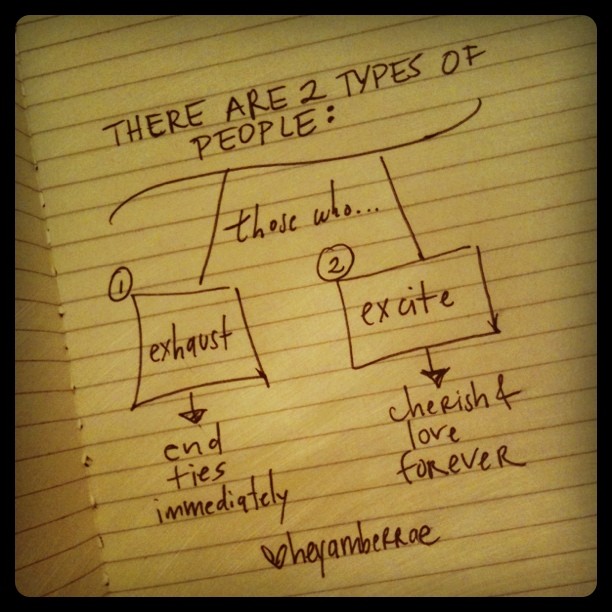 THERE ARE 2 TYPES OF
PEOPLE:
those who...
1
2
exhaust
excite
end
ties
immediately
cherish &
love
forever
♡heyamberrae